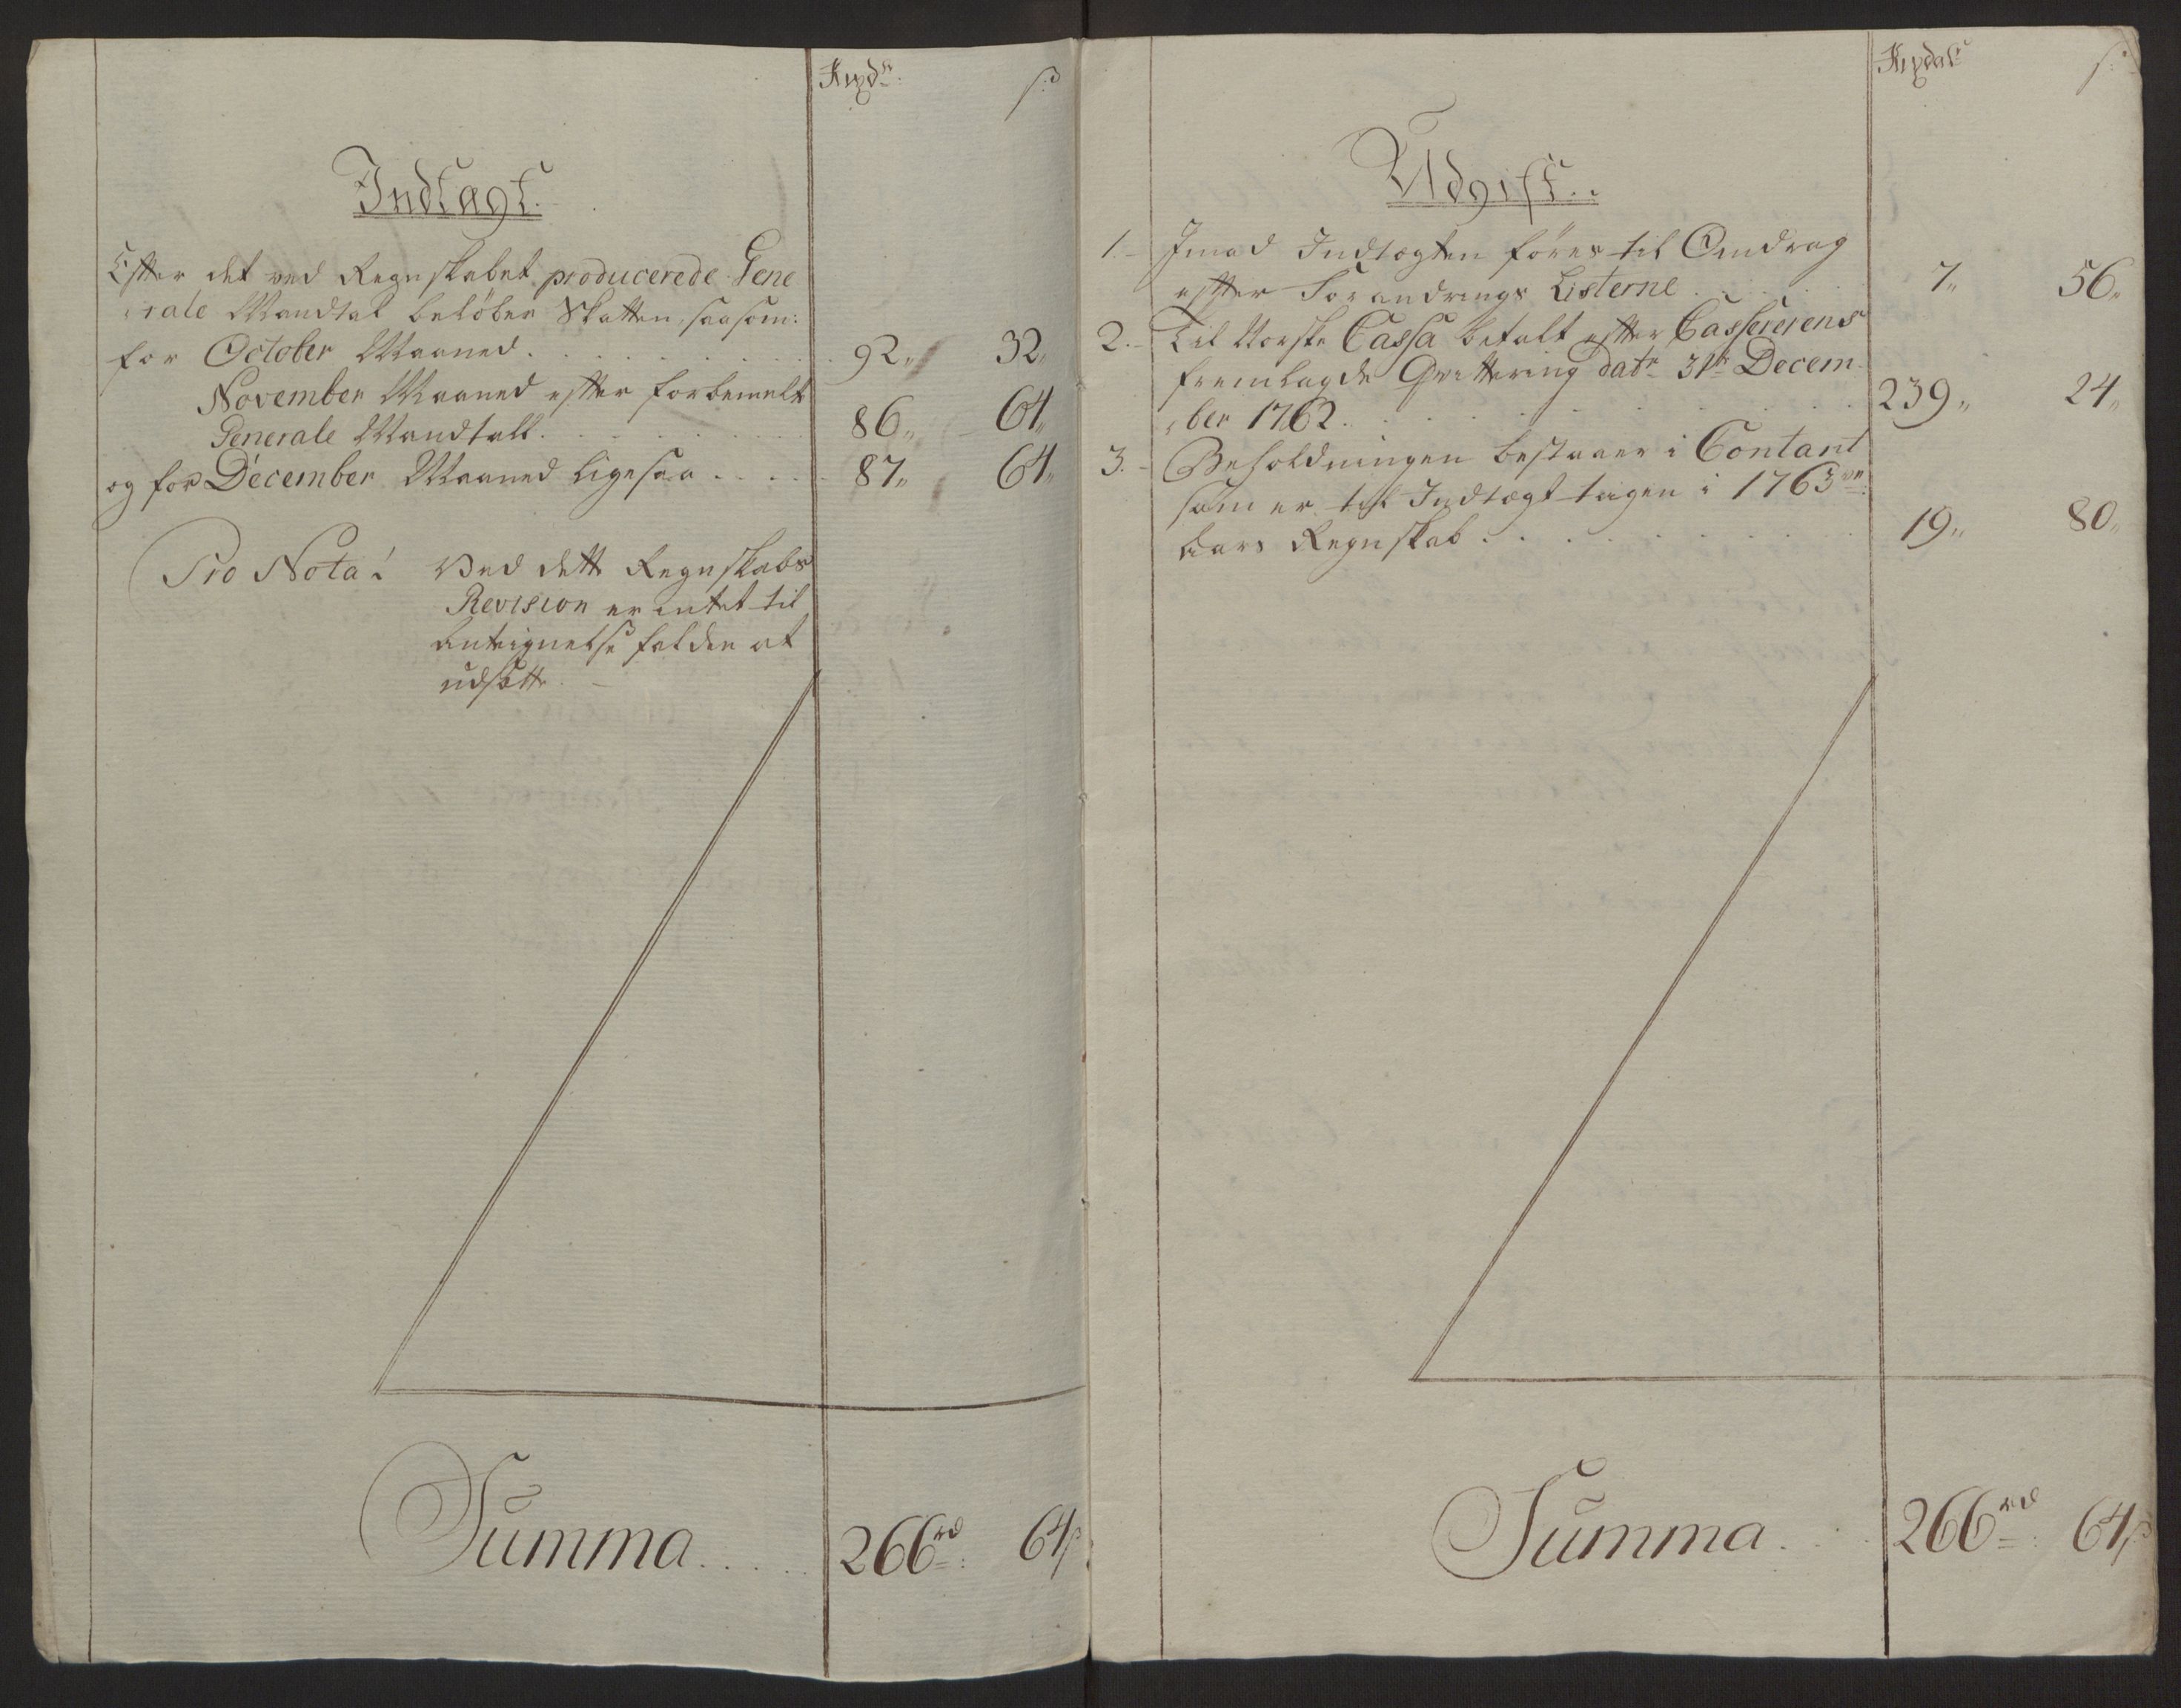 Rixdr. ß
Indtægt.
Efter det ved Regnskabet producerede Gene
rale Mandtal beløber Skatten, saasom:
for October Maaned . . . . . . . . 92,, 32,,
November Maaned efter forbemelte
Generale Mandtall . . . . . . . . 86,, 64,,
og for December Maaned ligesaa . . . . 87,, 64,,
Pro Nota: Ved dette Regnskabs
Revision er intet til
Antegnelse falden at
udsætte.
Summa . . . . 266rd: 64ß
Rixdalr ß
Udgift..
1. Imod Indtægten føres til Omdrag
efter Forandrings Listerne . . . . . 7,, 56,,
2. Til Norske Cassa betalt efter Cassererens
fremlagde Qvittering datr 31te Decem
ber 1762. . . . . . . . . . 239,, 24,,
3. Beholdningen bestaaer i Contant
som er til Indtægt tagen i 1763de
Aars Regnskab . . . . . . . . . 19,, 80,,
Summa . . . 266rd: 64ß